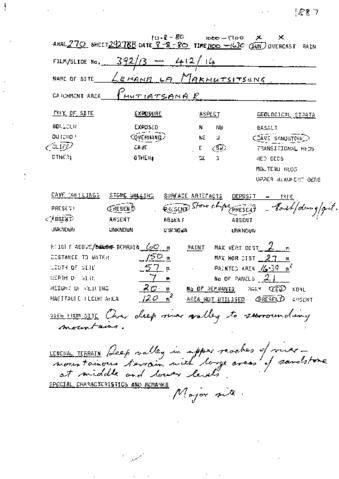 1887
10-8-80 1000-1700 x x
ANAL 270 SHEET 2927BB DATE 8-8-80 TIME 1100-1630 SUN OVERCAST RAIN
FILM/SLIDE No. 392/13 — 412/14
NAME OF SITE LEHAHA LA MAKHUTSITSONG
CATCHMENT AREA PHUTIATSANA R.
TYPE OF SITE EXPOSURE ASPECT GEOLOGICAL STRATA
BOULDER EXPOSED N NW BASALT
OVERHANG NE S CAVE SANDSTONE
CLIFF CAVE E SW TRANSITIONAL BEDS
OTHER: OTHER: SE RED BEDS
MOLTENO BEDS
UPPER BEAUFORT BEDS
CAVE DWELLINGS STONE WALLING SURFACE ARTEFACTS DEPOSIT - TYPE
PRESENT PRESENT PRESENT Stone chips PRESENT - dust/dung/grit.
ABSENT ABSENT ABSENT ABSENT
UNKNOWN UNKNOWN UNKNOWN UNKNOWN
HEIGHT ABOVE TERRAIN 60 m PAINT MAX VERT DIST 2 m
DISTANCE TO WATER 150 m MAX HOR DIST 27 m
WIDTH OF SITE 57 m PAINTED AREA m²
DEPTH OF SITE 7 m No OF PANELS 21
HEIGHT OF CEILING 20 m No OF REMNANTS
HABITABLE FLOOR AREA 120 m² AREA NOT UTILISED PRESENT ABSENT
VIEW FROM SITE Over deep river valley to surrounding
mountains.
GENERAL TERRAIN Deep valley in upper reaches of river -
mountainous terrain with large areas of sandstone
at middle and lower levels.
SPECIAL CHARACTERISTICS AND REMARKS
Major site.